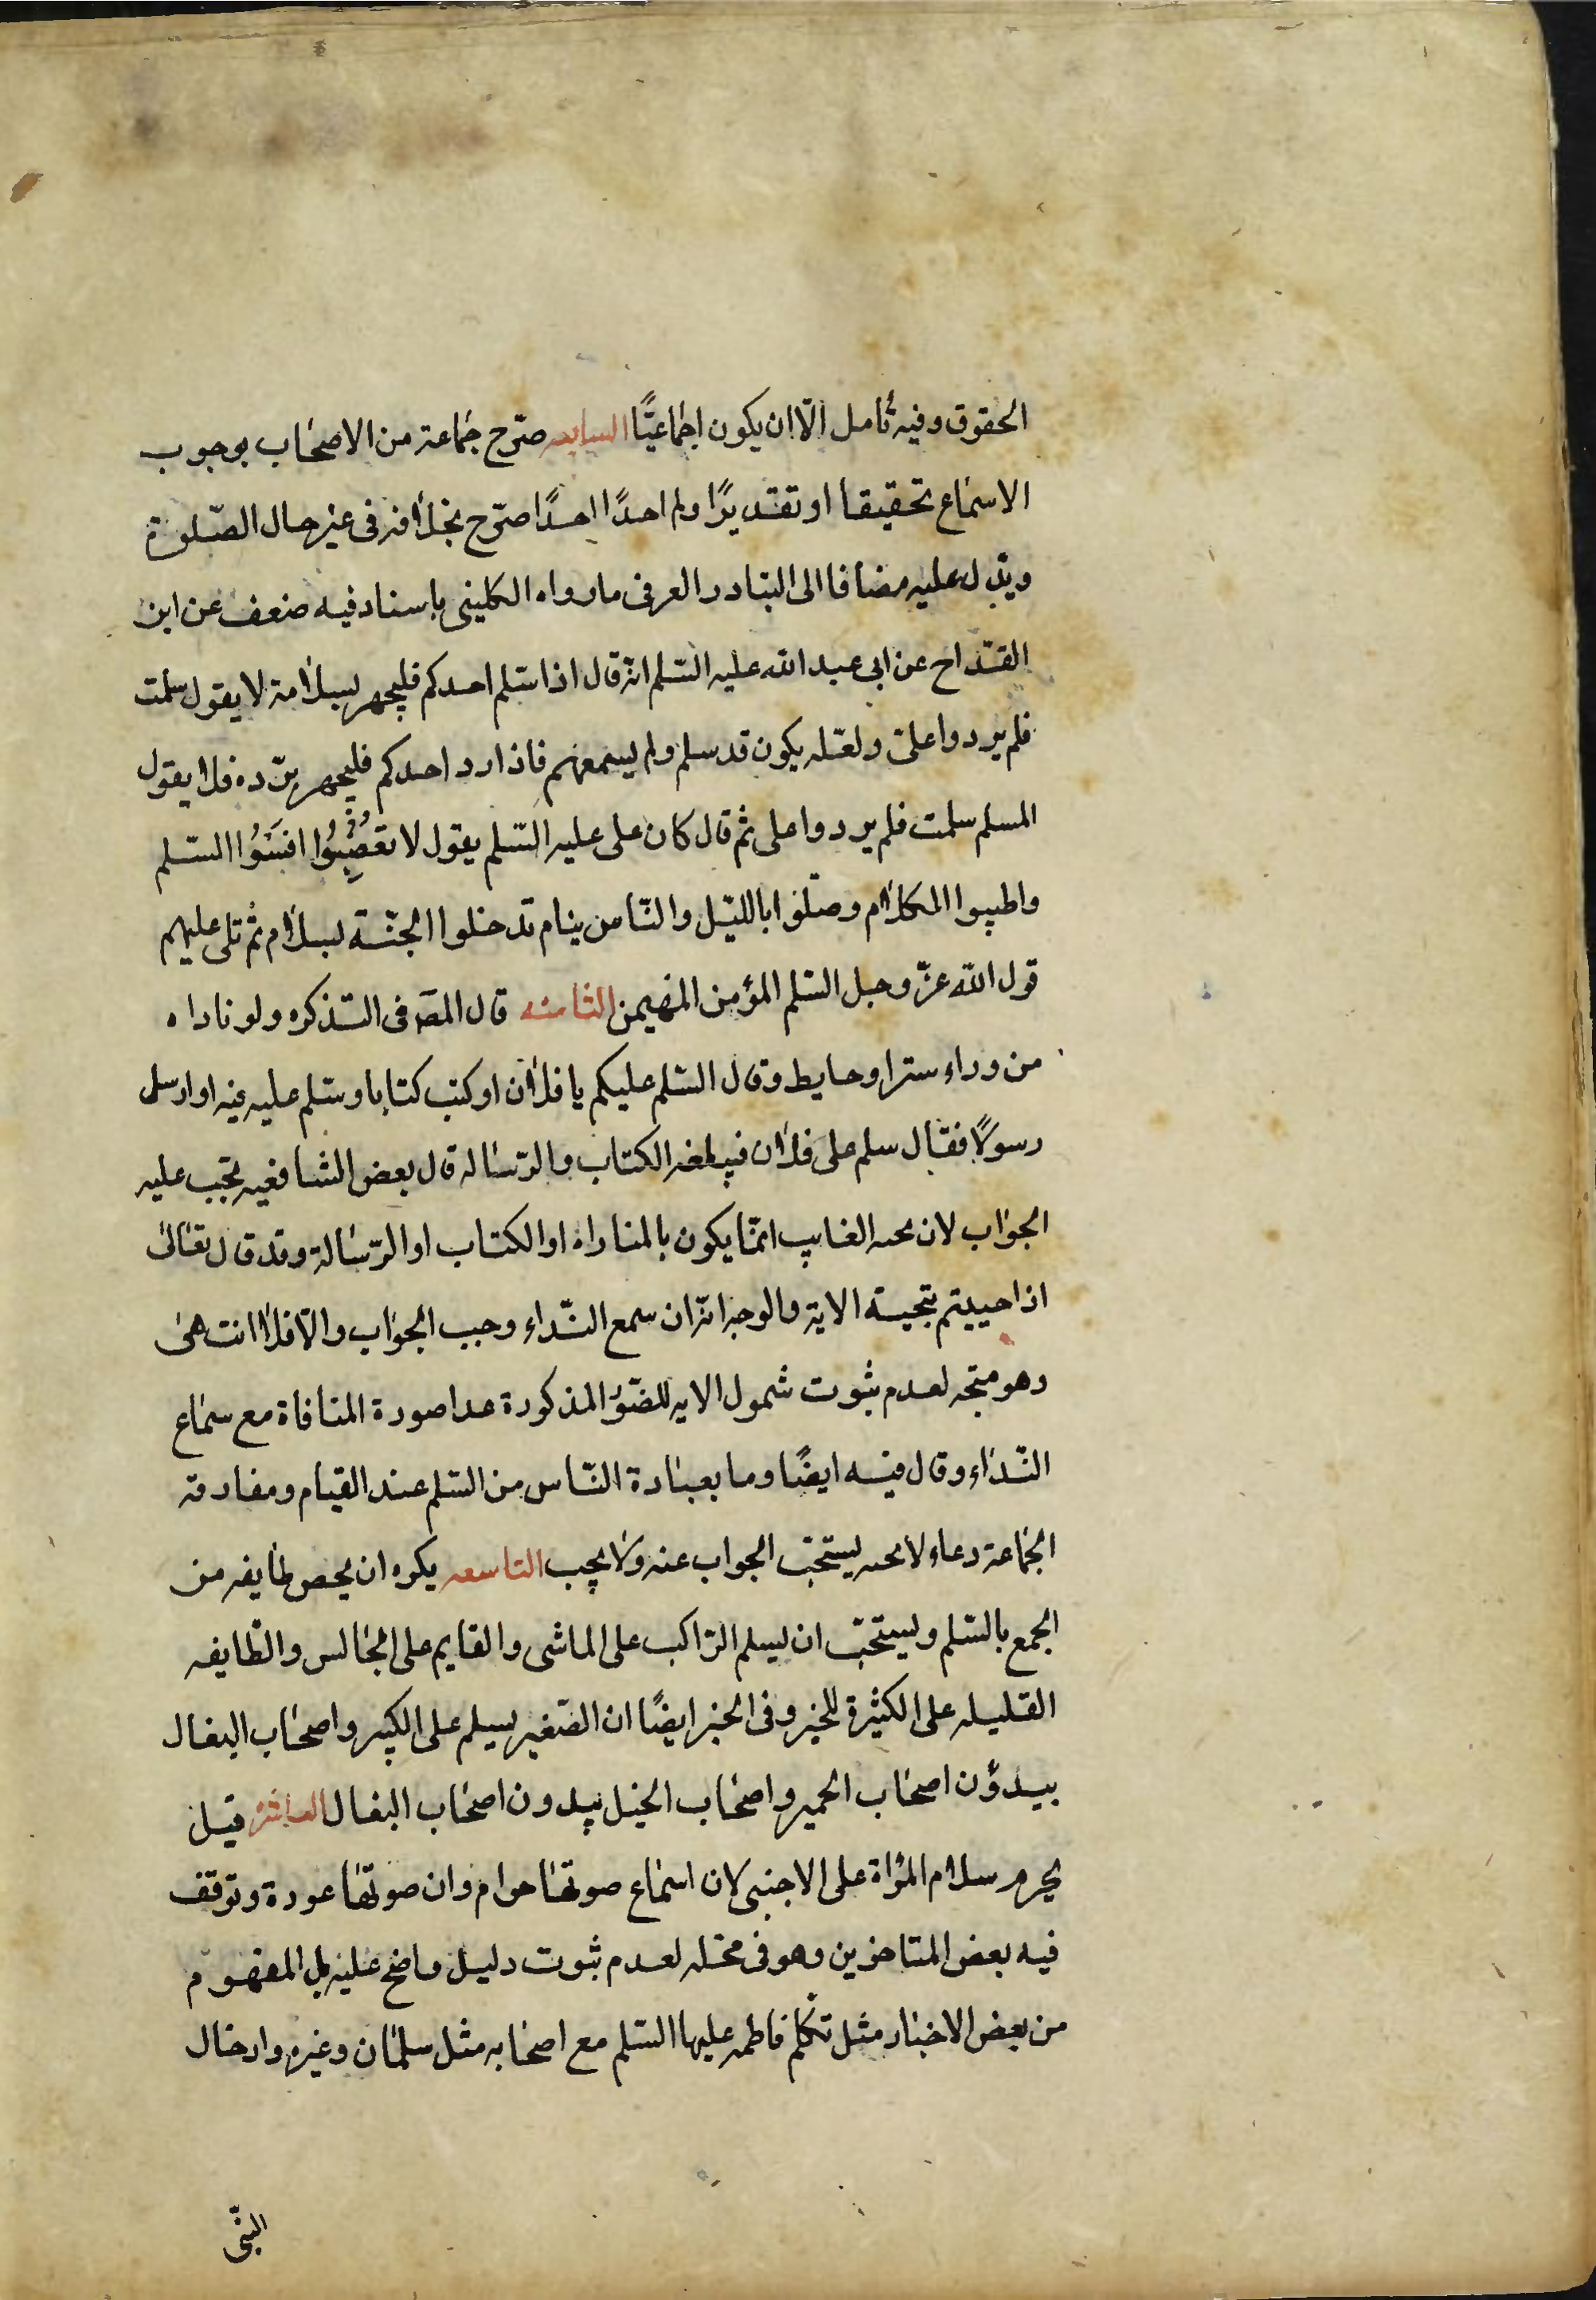 الحقوق وفيه تأمل الّا ان يكون اجماعيًّا السابعه صرّح جماعة من الاصحاب بوجوب
الاسماع تحقيقا او تقديرًا ولم احدًا احدًا صرّح بخلافه فى غير حال الصّلوة
ويدّل عليه مضافا الى التبادر العرفى مارواه الكلينى باسناد فيه ضعف عن ابن
القدّاح عن ابى عبد الله عليه السّلم انّه قال اذا سّلم احدكم فليجهر بسلامة لا يقول سلمت
فلم يردوا علىّ ولعّله يكون قد سلم ولم يسمعهم فاذا رد احدكم فليجهر بردّه فلا يقول
المسلم سلمت فلم يردوا على ثم قال كان على عليه السّلم يقول لا تغضبُوا افشُوا السّلم
واطيبوا الكلام وصلّوا بالليّل والنّاس نيام تدخلوا الجنّة بسلام ثم تلى عليهم
قول الله عزّ وجل السّلم المؤمن المهيمن الثامنه قال المصَ فى التّذكره ولو ناداه
من وراء ستر او حايط وقال السّلم عليكم يا فلان او كتب كتابا وسّلم عليه فيه او ارسل
رسولًا فقال سلم على فلان فبلغه الكتاب والرّساله قال بعض الشافعيه تجب عليه
الجواب لان تحيه الغايب انّما يكون بالمناداه او الكتاب او الرّسالة وقد قال تعالى
اذا حييتم بتحيّة الاية والوجه انّه ان سمع النّداء وجب الجواب والّا فلا انتهى
وهو متجه لعدم ثبوت شمول الايه للصّور المذكورة عدا صورة المنافاة مع سماع
النّداء وقال فيه ايضًا وما بعبادة النّاس من السّلم عند القيام ومفارقة
الجماعة دعاء لا تحيه يستحبّ الجواب عنه ولا يجب التاسعه يكره ان يخص طايفه من
الجمع بالسّلم ويستحبّ ان يسلم الرّاكب على الماشى والقايم على الجالس والطّايفه
القليله على الكثيرة للخبر وفى الخبر ايضًا ان الصّغير يسلم على الكبير واصحاب البغال
يبدؤن اصحاب الحمير واصحاب الخيل يبدون اصحاب البغال العاشرة قيل
يحرم سلام المرأة على الاجنبى لان اسماع صوتها حرام وان صوتها عورة وتوقف
فيه بعض المتاخرين وهو فى محّله لعدم ثبوت دليل واضح عليه بل المفهوم
من بعض الاخبار مثل تكلم فاطمه عليها السّلم مع اصحابه مثل سلمان وغيره وادخال
النبّى